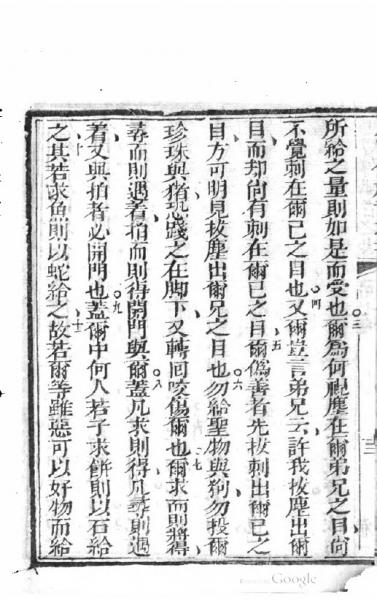 所給之量則如是而受也爾爲何視塵在爾弟兄之目尙
三
不覺刺在爾己之目也又爾豈言弟兄云許我拔塵出爾
四
目而却尙有刺在爾己之目爾僞善者先拔刺出爾己之
五
目方可明見拔塵出爾兄之目也勿給聖物與狗勿投爾
六
珍珠與猪恐踐之在脚下又轉回咬傷爾也爾求而則將得
七
尋而則遇着拍而則得開門與爾蓋凡求則得凡尋則遇
八
着又與拍者必開門也蓋爾中何人若子求餅則以石給
九
之其若求魚則以蛇給之故若爾等雖惡可以好物而給
十
十一
Google